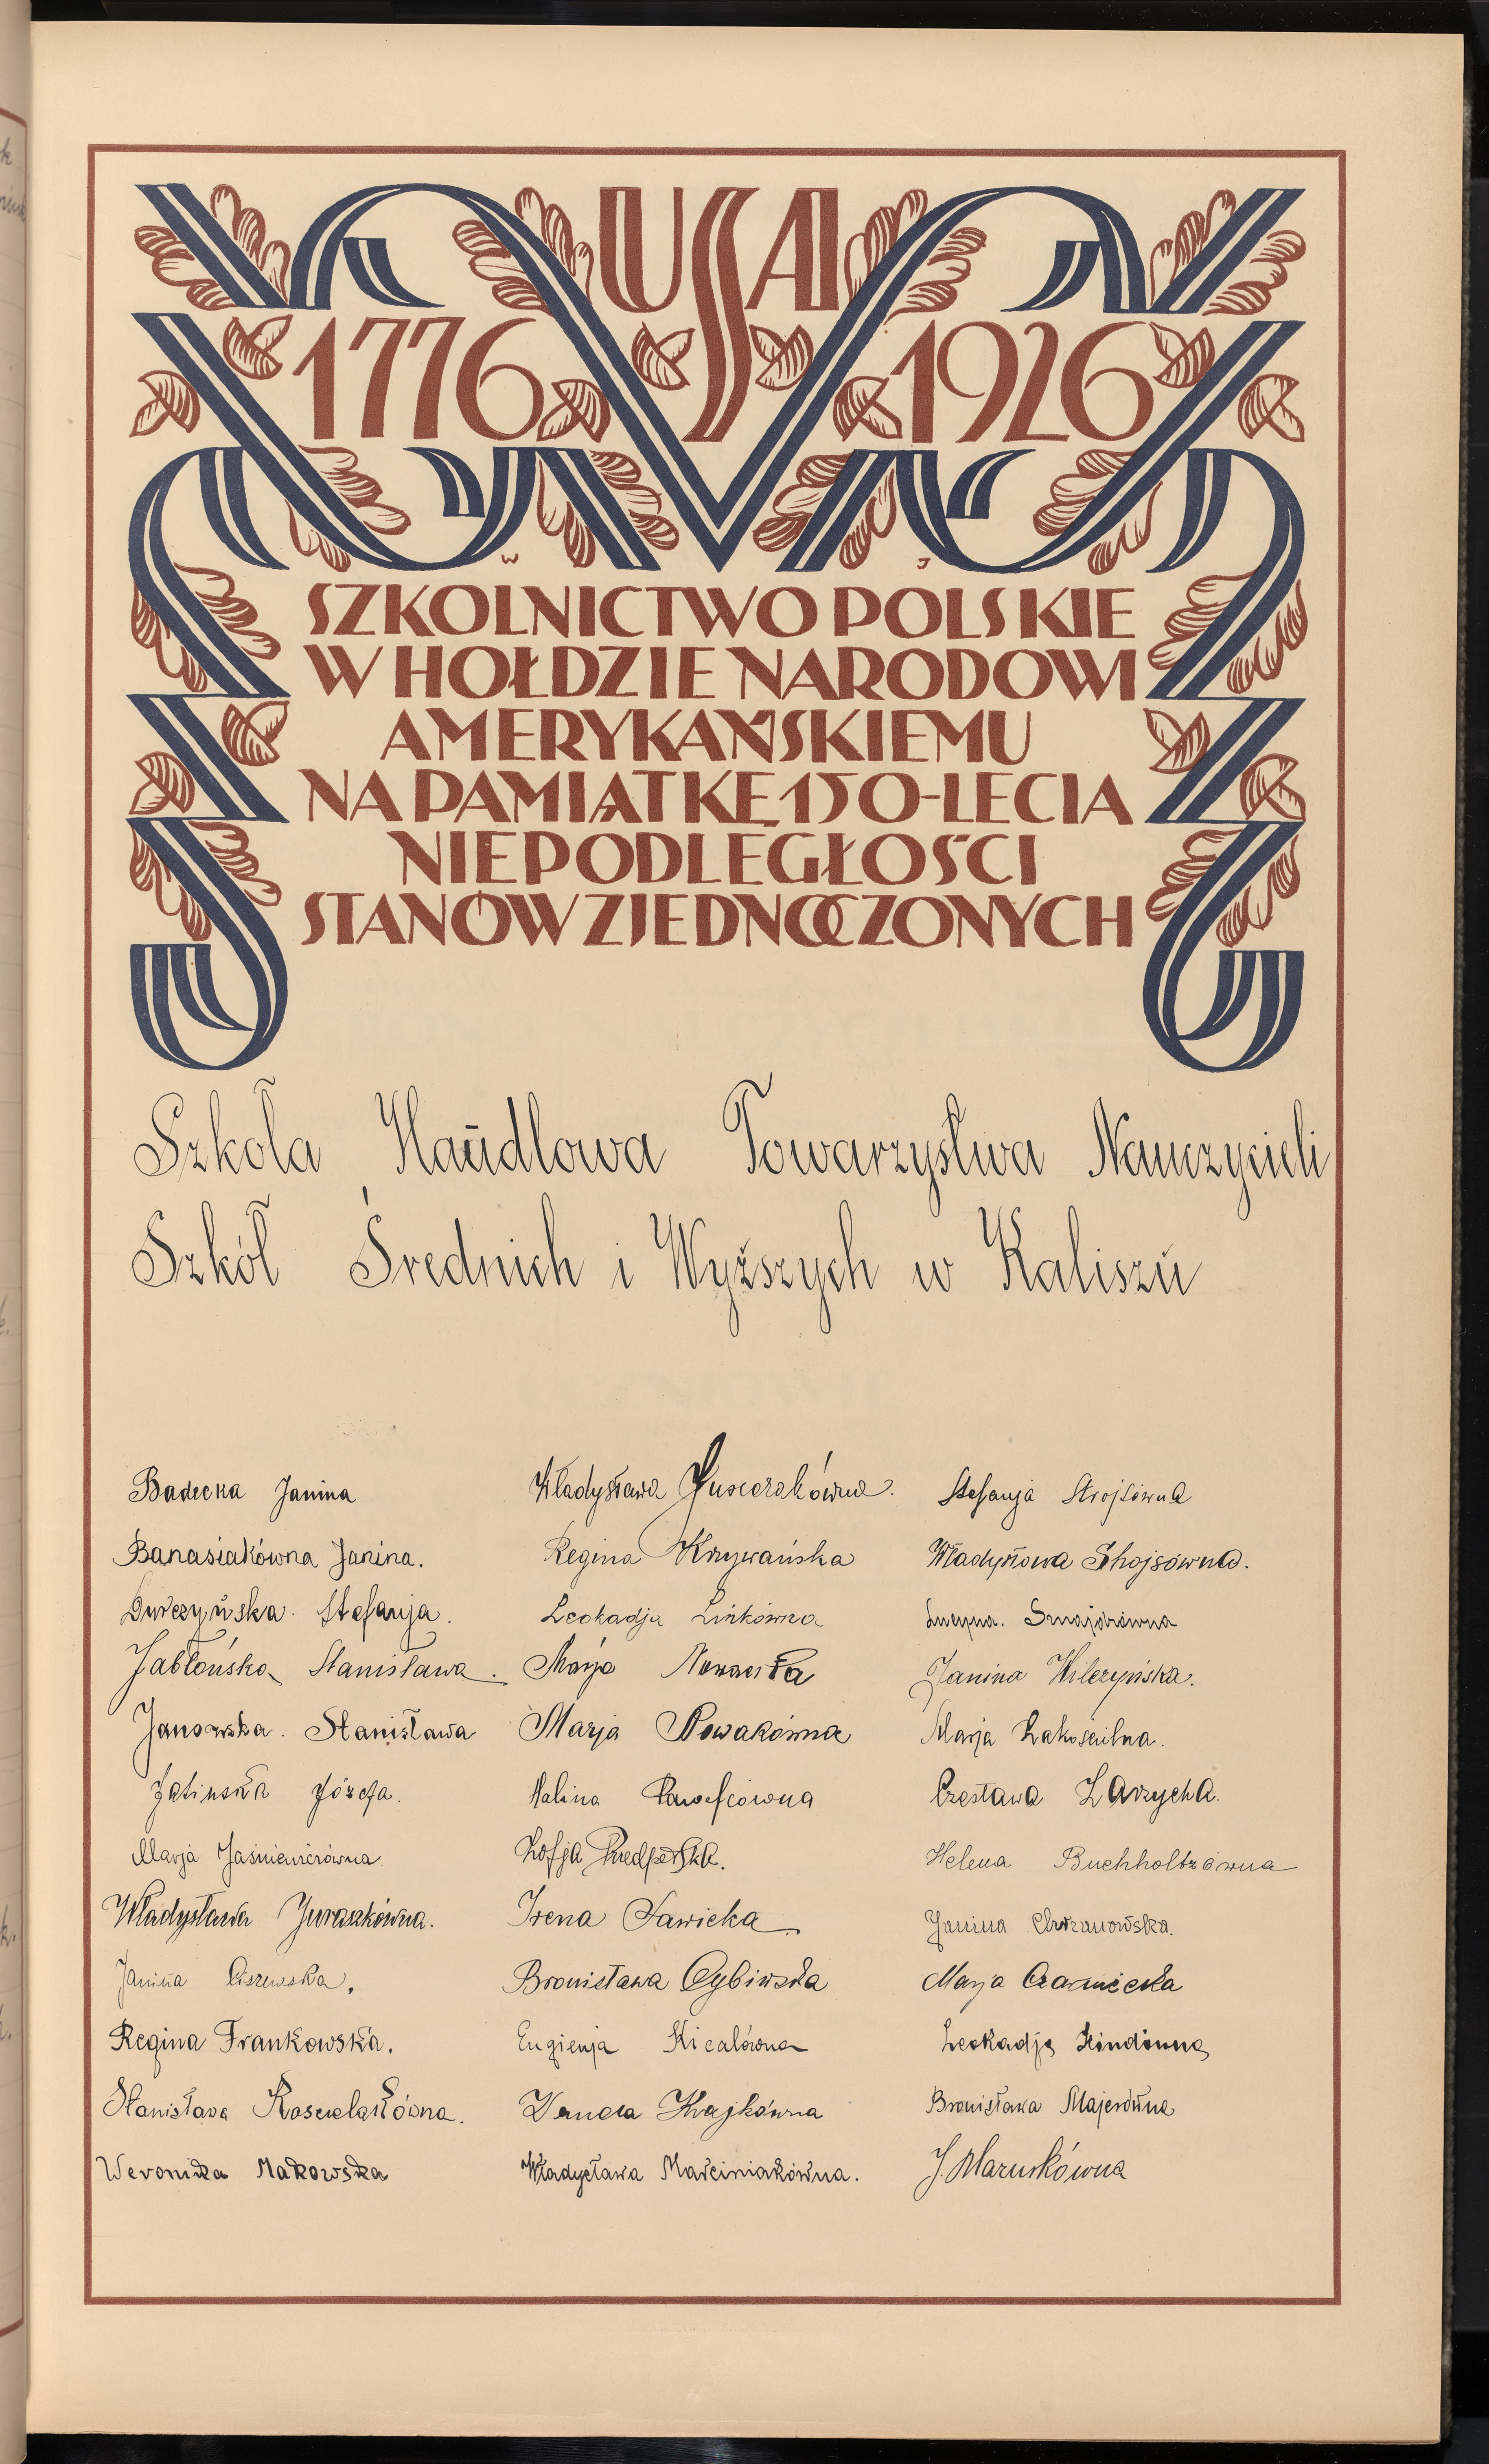 USA
1776 1926
W J
SZKOLNICTWO POLSKIE
W HOŁDZIE NARODOWI
AMERYKAŃSKIEMU
NA PAMIĄTKĘ 150-LECIA
NIEPODLEGŁOŚCI
STANÓW ZJEDNOCZONYCH
Szkoła Handlowa Towarzystwa Nauczycieli
Szkół Średnich i Wyższych w Kaliszu
Badecka Janina
Banasiakówna Janina.
Durczyńska Stefanja.
Jabłońska Stanisława.
Janowska. Stanisława
Józefa.
Marja Jaśniewiczówna
Władysława Juraszkówna.
Janina Ciszewska.
Regina Frankowska.
Stanisława
Weronika Makowska
Władysława
Regina Krzywańska
Leokadja Linkówna
Marja Nowacka
Marja Nowakówna
Halina
Zofja
Irena Sawicka
Bronisława Cybińska
Eugienja Kicalówna
Wanda Krajkówna
Władysława Marciniakówna.
Stefanja Strojsówna
Władysława
Lucyna.
Janina Wilczyńska.
Marja Zakościelna.
Czesława Zarzycka.
Helena Buchholtzówna
Janina Chrzanowska.
Marja Czarnecka
Leokadja Hindówna
Bronisława Majerówna
J. Maruskówna